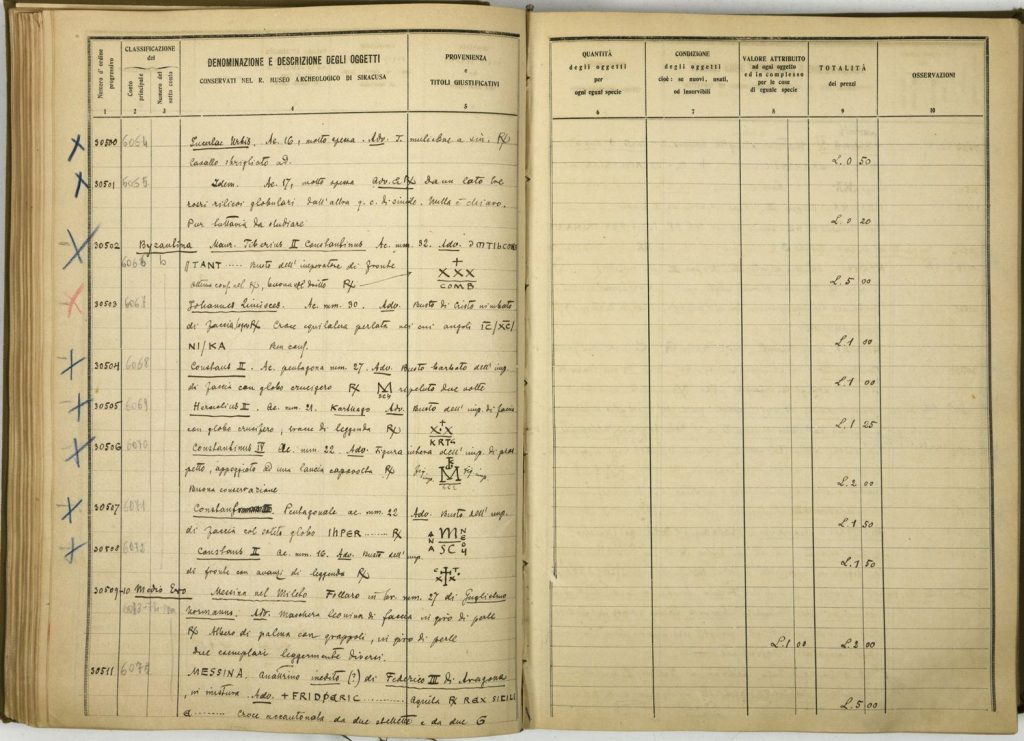 Numero d'ordine progressivo
CLASSIFICAZIONE del
Conto principale
Numero del sotto conto
DENOMINAZIONE E DESCRIZIONE DEGLI OGGETTI
CONSERVATI NEL R. MUSEO ARCHEOLOGICO DI SIRACUSA
PROVENIENZA
e
TITOLI GIUSTIFICATIVI
1 2 3 4 5
30500 6064 Ae. 16, molto spessa. Adv. T. muliebre a sin. ℞
Cavallo sbrigliato ad.
30501 6065 Idem. Ae. 17, molto spessa Adv. e ℞ Da un lato tre
rilievi globulari dall'altra q. c. di simile. Nulla è chiaro.
Pur tuttavia da studiare
30502 Byzantina Maur. Tiberius II Constantinus Ae. mm. 32. Adv.
6066 b TANT .... Busto dell'imperatore di fronte +
XXX
ottima cons. nel ℞, buona nel diritto ℞ COMB
30503 6067 Johannes Zimisces. Ae. mm. 30. Adv. Busto di Cristo nimbato
di faccia ℞ Croce equilatera perlata nei cui angoli IC/XC/
NI/KA Ben cons.
30504 6068 Constans II. Ae. pentagona mm. 27. Adv. Busto barbato dell'imp.
di faccia con globo crucigero ℞ M repetuto due volte
SCL
30505 6069 Heraclius II. Ae. mm. 21. Karthago Adv. Busto dell'imp. di faccia
con globo crucifero, tracce di leggenda ℞ X·X
KRTG
30506 6070 Constantinus IV Ae. mm. 22. Adv. Figura intera dell'imp. di pros
petto, appoggiato ad una lancia capovolta ℞ Fig. imp. M Fig. imp.
Buona conservazione
30507 6071 Pentagonale ae. mm. 22 Adv. Busto dell'imp.
di faccia col solito globo IhPER ........ ℞ ANA M NEOY
SC
30508 6072 Constans II Ae. mm. 16. Adv. Busto dell'imp.
di fronte con avanzi di leggenda ℞
30509-10 Medio Evo Messina nel Mileto Follaro in br. mm. 27 di Guglielmo
normanno. Adv. Maschera leonina di faccia in giro di perle
℞ Albero di palma con grappoli, in giro di perle
due esemplari leggermente diversi.
30511 6075 MESSINA. Quattrino inedito (?) di Federico III di Aragona
in mistura Adv. + FRIDERIC .......... Aquila ℞ REX SICILI
E ........ Croce accantonata da due stellette e da due G
QUANTITÀ
degli oggetti
per
ogni egual specie
CONDIZIONE
degli oggetti
cioè: se nuovi, usati,
od inservibili
VALORE ATTRIBUITO
ad ogni oggetto
ed in complesso
per le cose
di eguale specie
TOTALITÀ
dei prezzi
OSSERVAZIONI
6 7 8 9 10
L. 0 50
L. 0 20
L. 5 00
L. 1 00
L. 1 00
L. 1 25
L. 2 00
L. 1 50
L. 1 50
L. 1 00 L. 2 00
L. 5 00